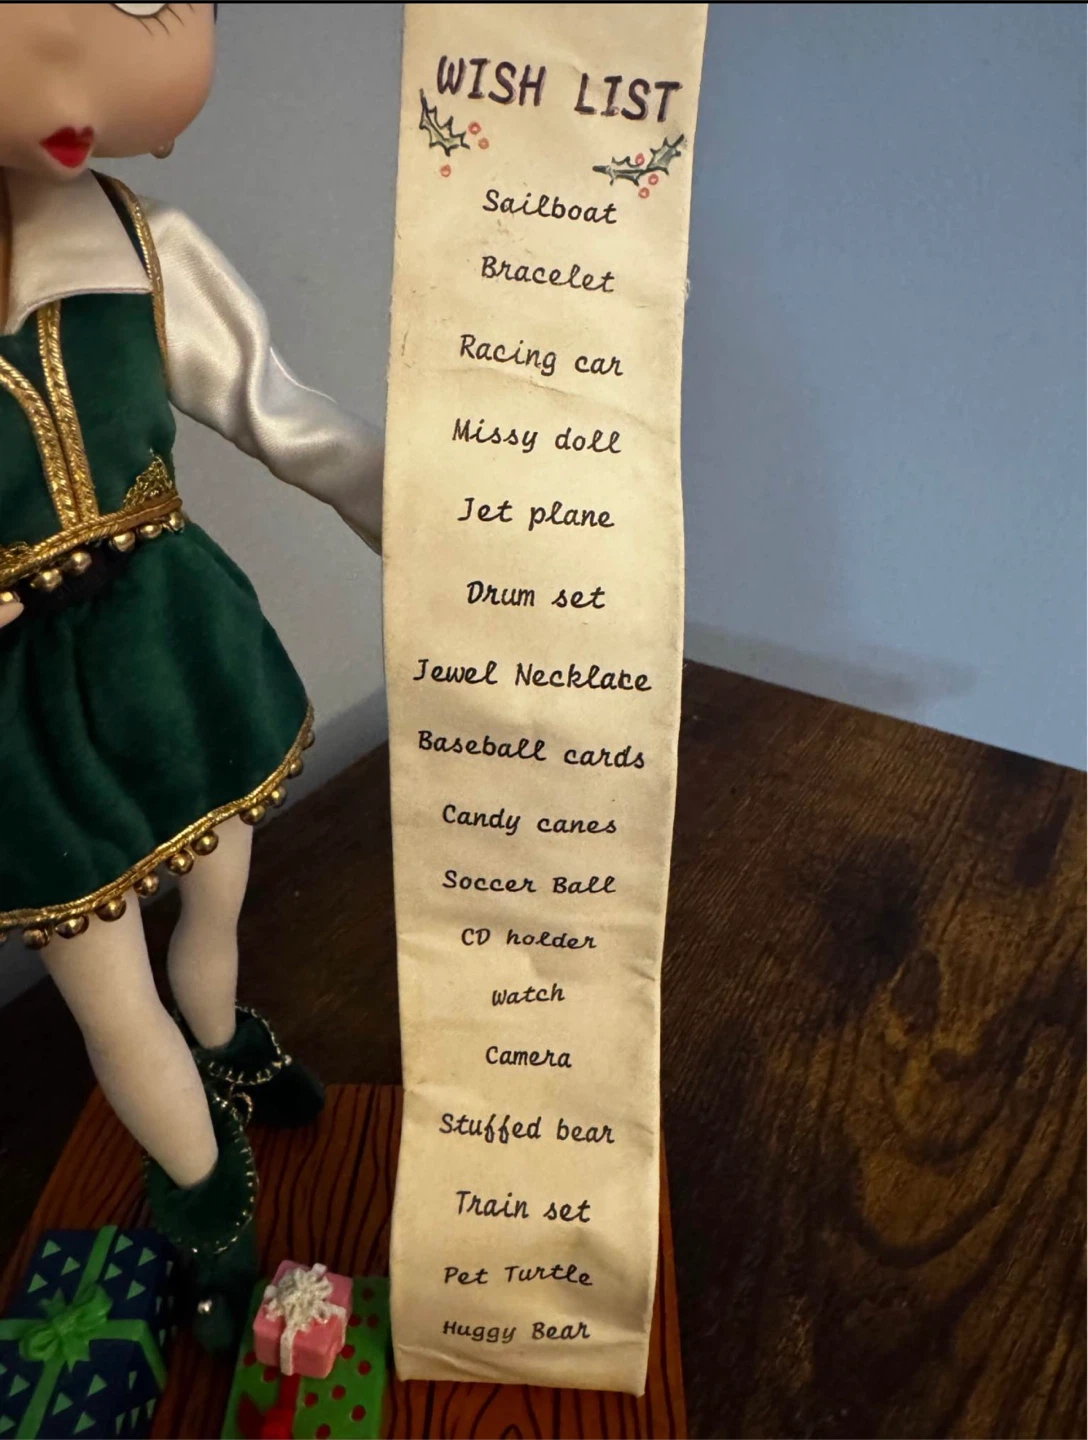 WISH LIST
Sailboat
Bracelet
Racing car
Missy doll
Jet plane
Drum set
Jewel Necklace
Baseball cards
Candy canes
Soccer Ball
CD holder
Watch
Camera
Stuffed bear
Train set
Pet Turtle
Huggy Bear